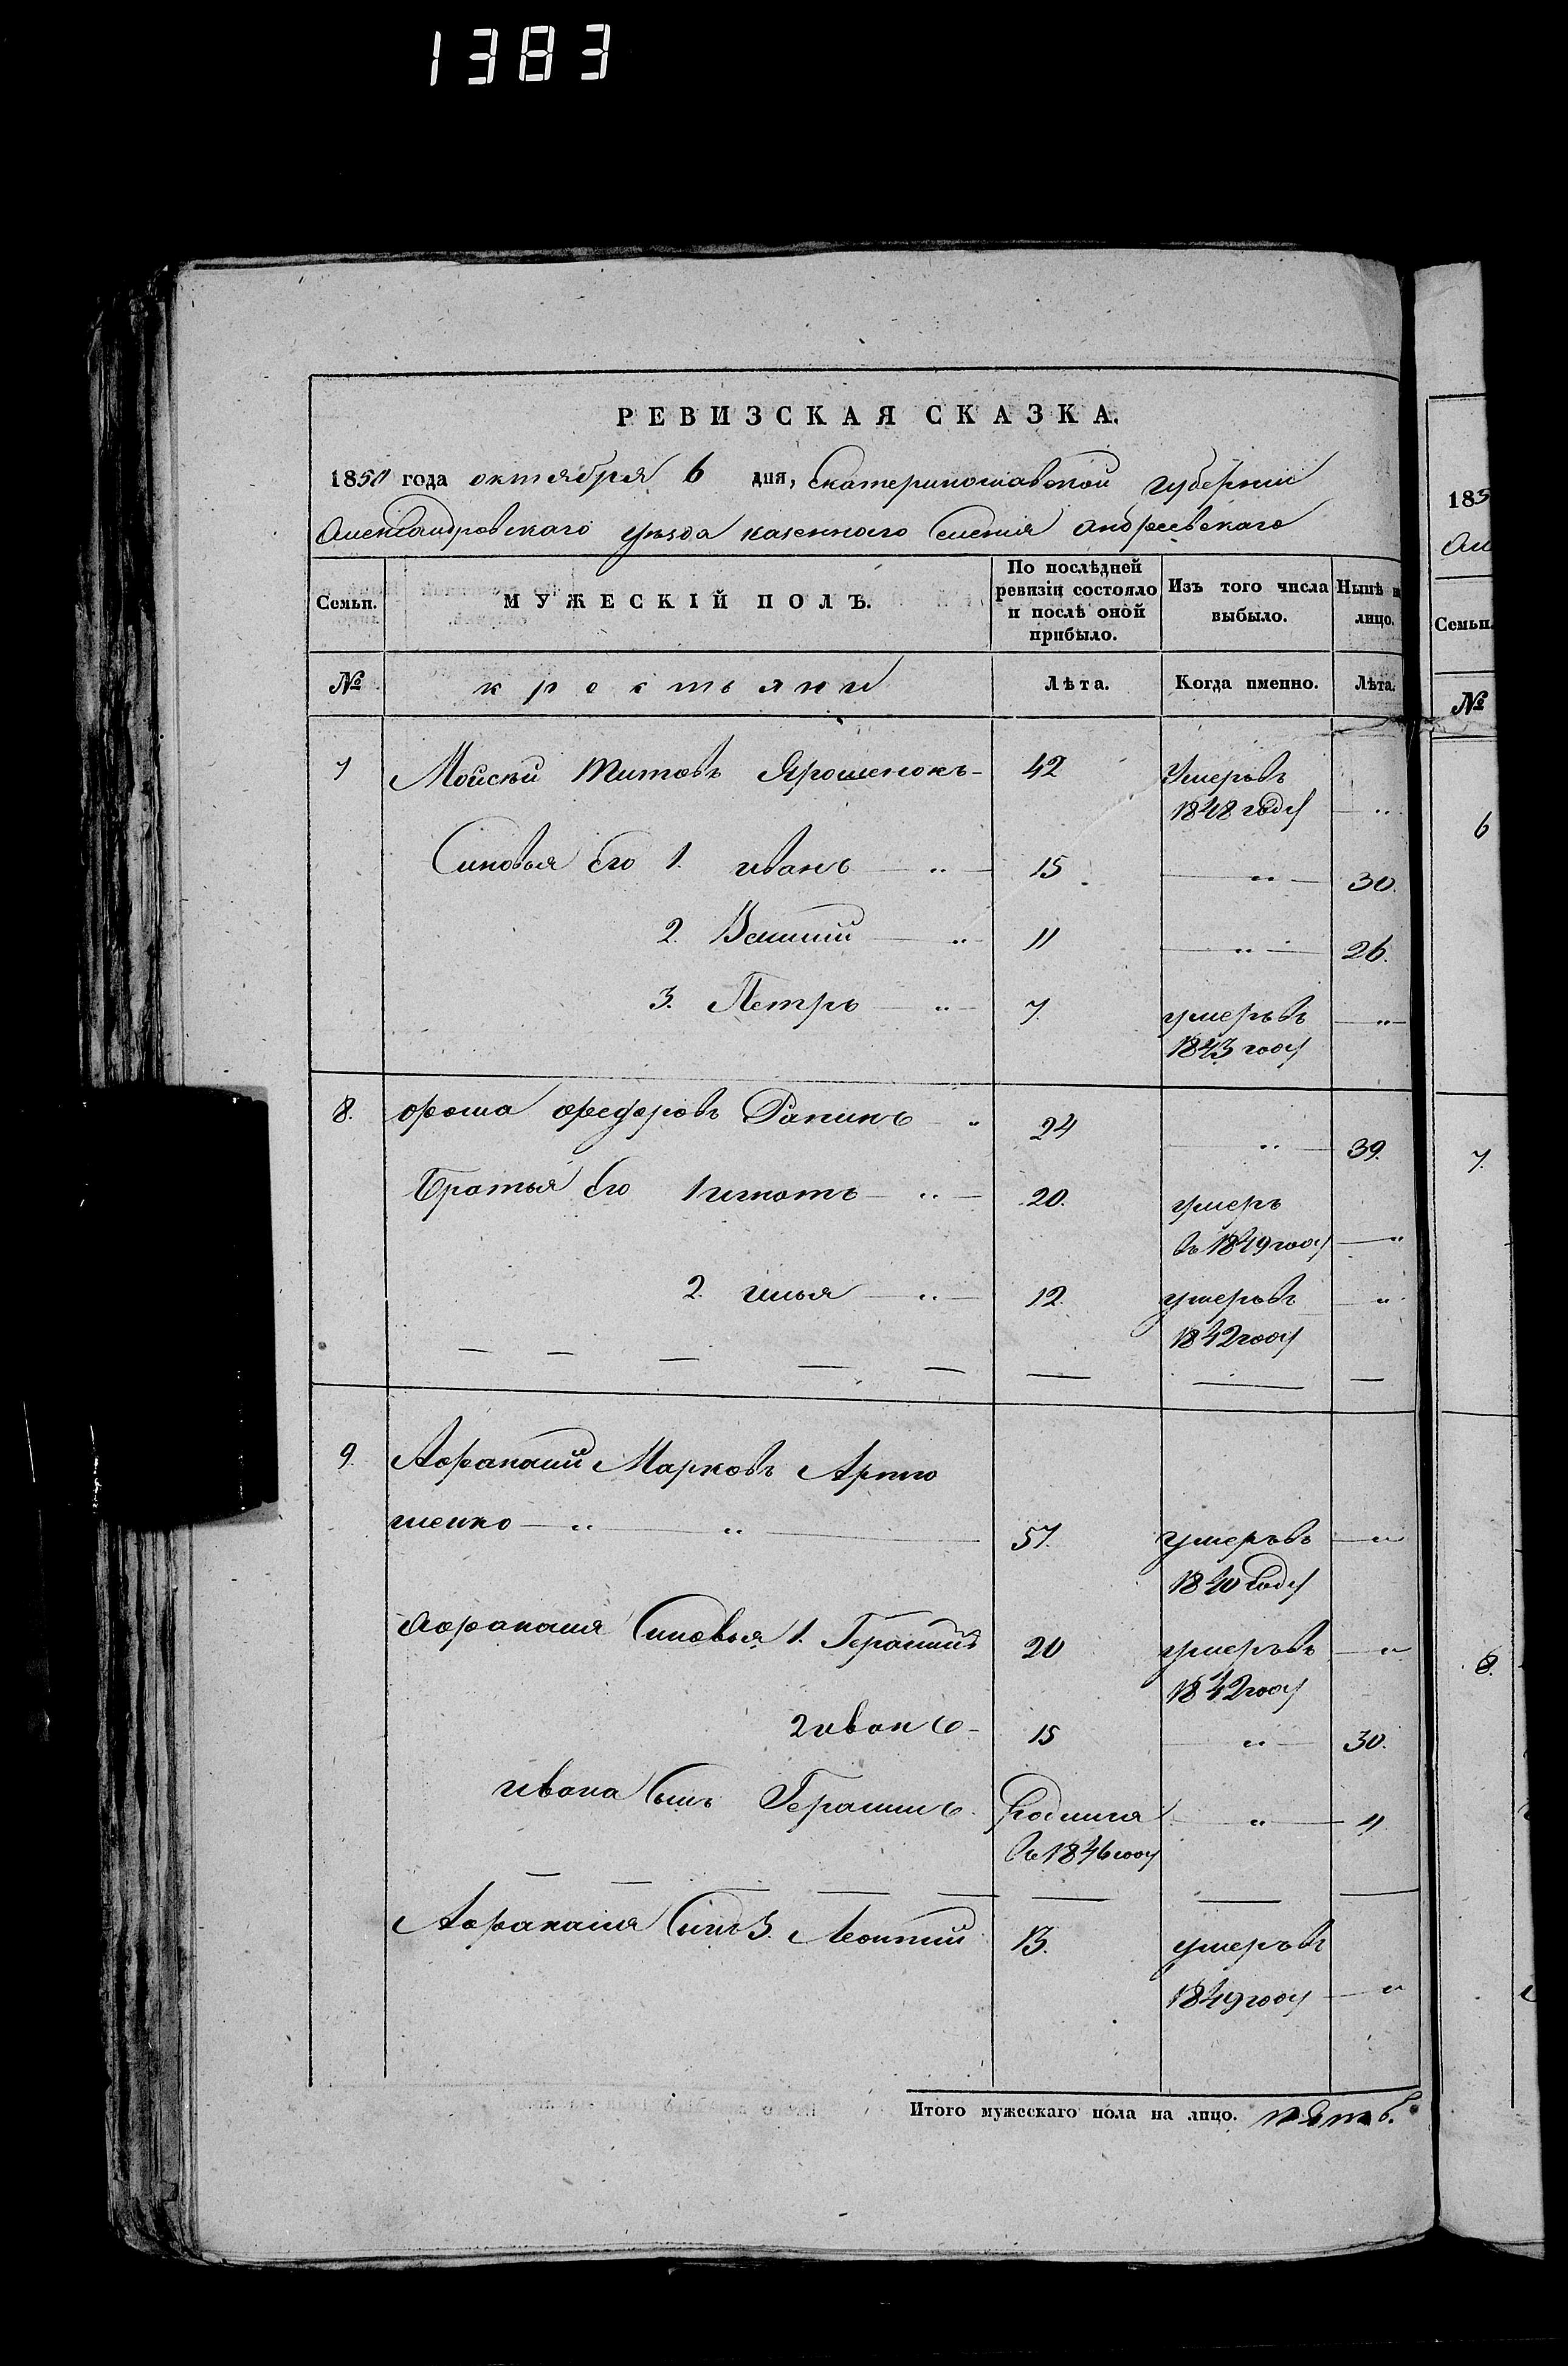 1383
РЕВИЗСКАЯ СКАЗКА.
1850 года октября 6 дня, Екатеринославской губернии
Александровскаго уѣзда казенного селения Андреевскаго
Семьи. МУЖЕСКІЙ ПОЛЪ. По послѣдней ревизіи состояло и послѣ оной прибыло. Изъ того числа выбыло. Нынѣ на лицо.
№ крестьяни Лѣта. Когда именно. Лѣта.
7 Моисѣй Титовъ Ярошенокъ 42 Умеръ въ
1848 году "
Синовья Его 1. иванъ " 15 " 30.
2. " 11 " 26.
3. Петръ " 7. умеръ въ "
1843 году
8. Фома Федоровъ " 24 " 39.
Братья Его 1 игнатъ " 20. умеръ
въ 1849 году "
2. илья " 12. умеръ въ "
1842 году
9. Афанасий Марковъ Артю
шенко " " 57. умеръ въ "
1840 году
Афанасия Синовья 1. Герасимъ 20 умеръ въ "
1842 году
2 иванъ 15 " 30.
ивана Сынъ Герасимъ. Родился " 4
въ 1846 году
Афанасия Синъ 3. Леонтий 13. умеръ въ
1849 году "
Итого мужескаго пола на лицо. пять.
183
Ал
Семьи.
№
6
7.
8.